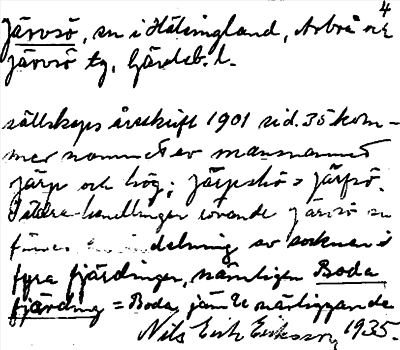 4
Järvsö, sn i Hälsingland, Arbrå och
Järvsö tg, Gävleb. l.
sällskaps årsskrift 1901 sid. 35 kom-
mer namnet av mansnamnet
Järp och hög; Järpshö > Järpsö.
I äldre handlingar rörande Järvsö sn
delning av socknen i
fyra fjärdingar, nämligen Boda
fjärding = Boda jämte närliggande
Nils Erik Eriksson 1935.